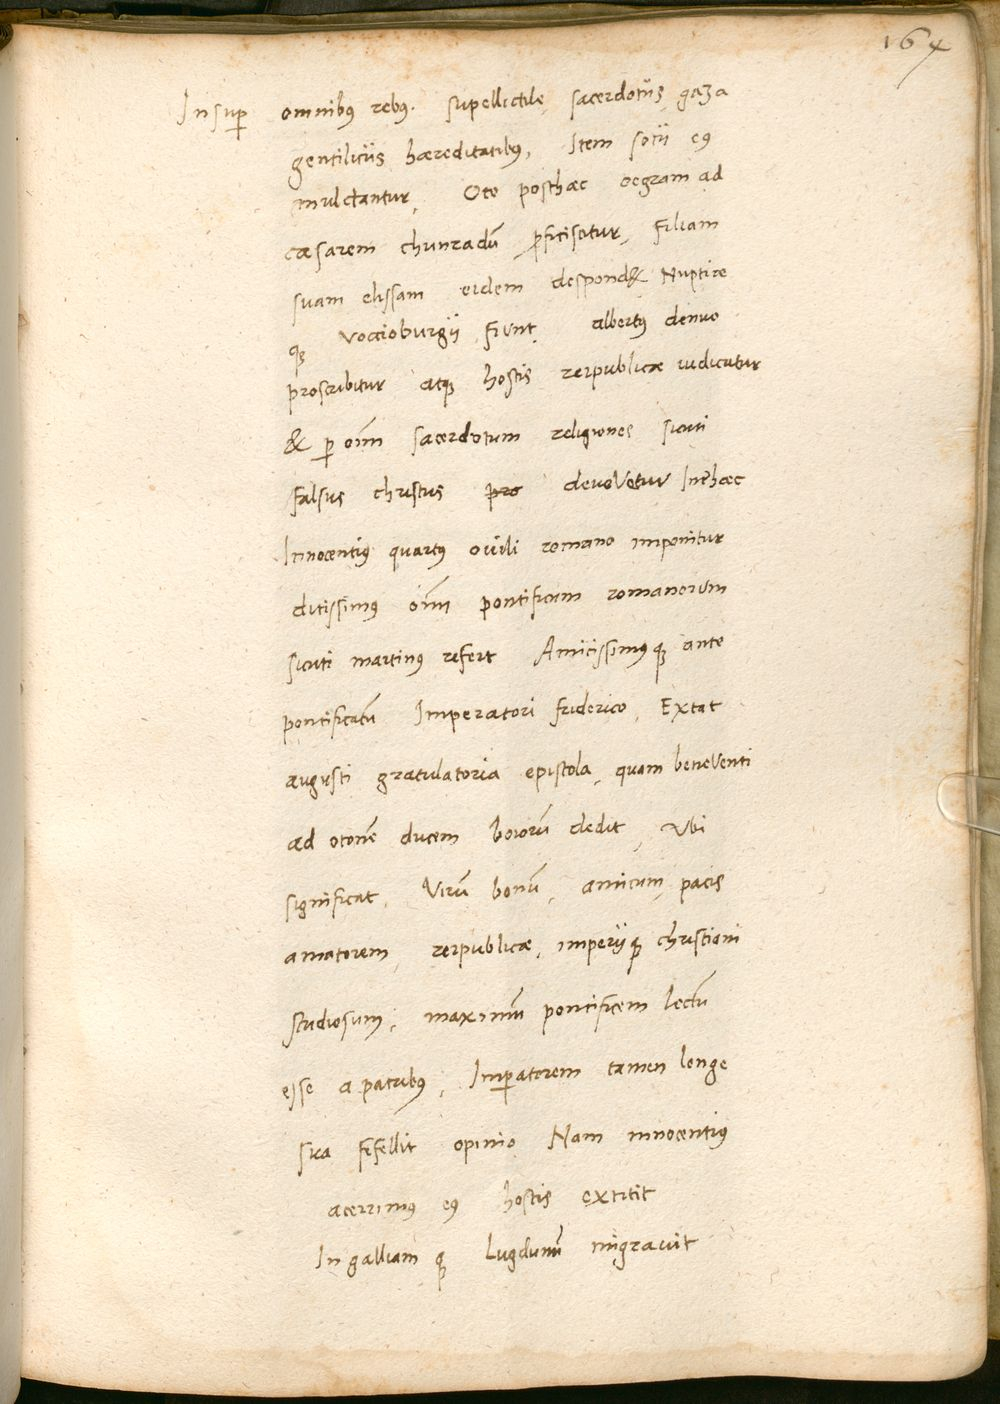 164
Insup omnibꝰ rebꝰ. supellectile, sacerdotiis, gaza
gentiliciis hæreditatibꝰ, Item socii eꝰ
mulctantur, Oto posthæc oegram ad
cæsarem chunradū ꝓficiscitur, filiam
suam elissam eidem despond& Nuptiæ
qꝫ vocioburgii fiunt, albertꝰ denuo
proscribitur atqꝫ hostis reipublicæ iudicatur
& ꝑ oīm sacerdotum religiones sicuti
falsus christus pro devovetur Inthæc
Innocentiꝰ quartꝰ ovili romano imponitur
ditissimꝰ oīm pontificum romanorum
sicuti martinꝰ refert Amicissimꝰqꝫ ante
pontificatū Imperatori friderico, Extat
augusti gratulatoria epistola, quam beneventi
ad otonē ducem boiorū dedit, Vbi
significat, Virū bonū, amicum, pacis
amatorem, reipublicæ, imperiiqꝫ christiani
studiosum, maximū pontificem lectū
esse a patribꝰ, Imꝑatorem tamen longe
sua fefellit opinio Nam innocentiꝰ
acerrimꝰ eꝰ hostis extitit
In galliam qꝫ Lugdunū migravit